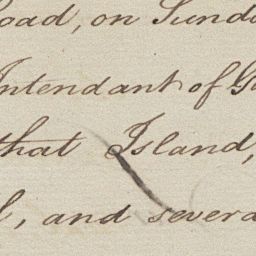 oad, on Sunda
Intendant of Gu
that Island,
l, and severa